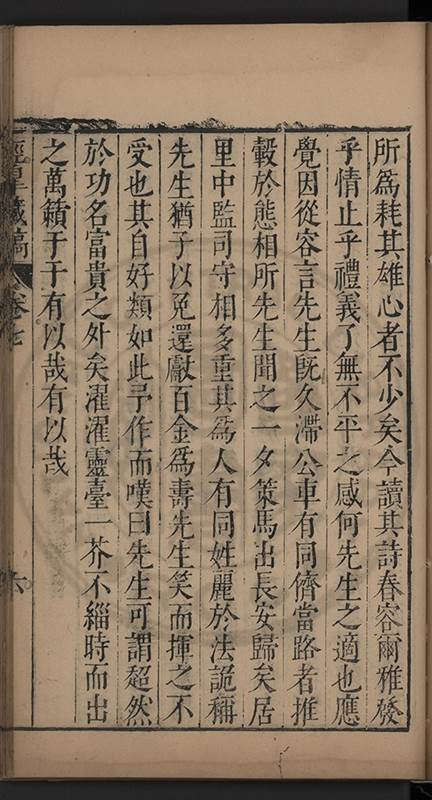 所爲耗其雄心者不少矣今讀其詩春容爾雅發
乎情止乎禮義了無不平之感何先生之適也應
覺因從容言先生旣久滯公車有同儕當路者推
轂於態相所先生聞之一夕策馬出長安歸矣居
里中監司守相多重其爲人有同姓麗於法詭稱
先生猶子以免還獻百金爲壽先生笑而揮之不
受也其自好類如此予作而嘆曰先生可謂超然
於功名富貴之外矣濯濯靈臺一芥不緇時而出
之萬籟于于有以哉有以哉
涇臯藏稿
卷七
六